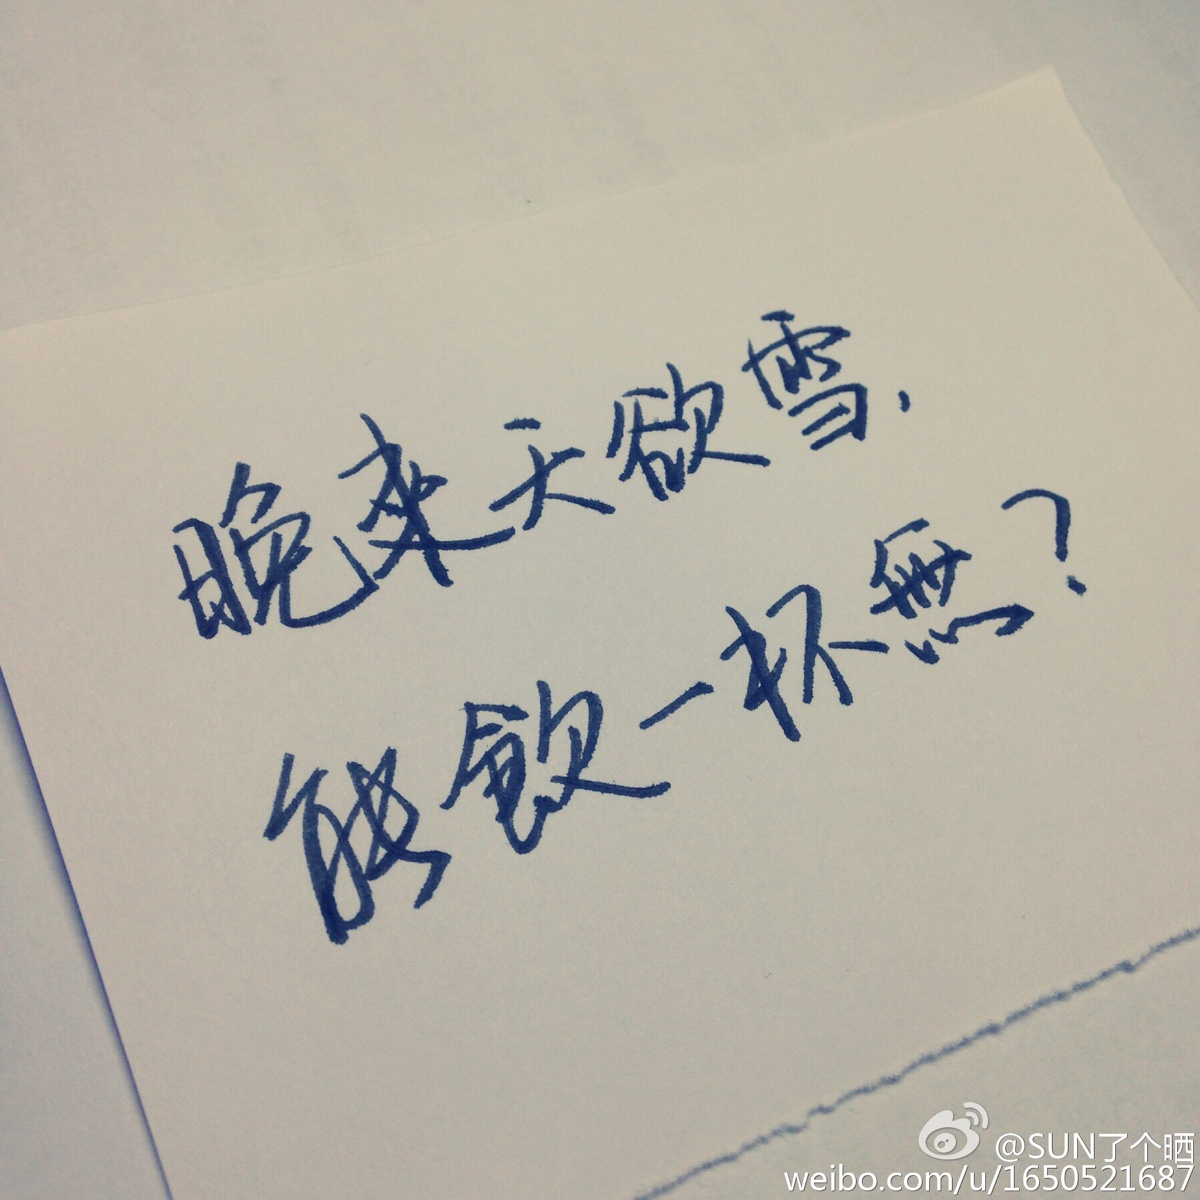 晚来天欲雪.
能飲一杯無?
@SUN了个晒
weibo.com/u/1650521687